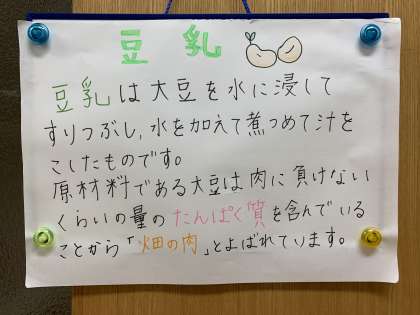 豆乳
豆乳は大豆を水に浸して
すりつぶし、水を加えて煮つめて汁を
こしたものです。
原材料である大豆は肉に負けない
くらいの量のたんぱく質を含んでいる
ことから「畑の肉」とよばれています。